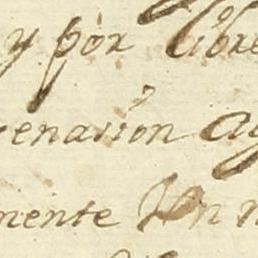 y por libre
enasion a
mente Un n